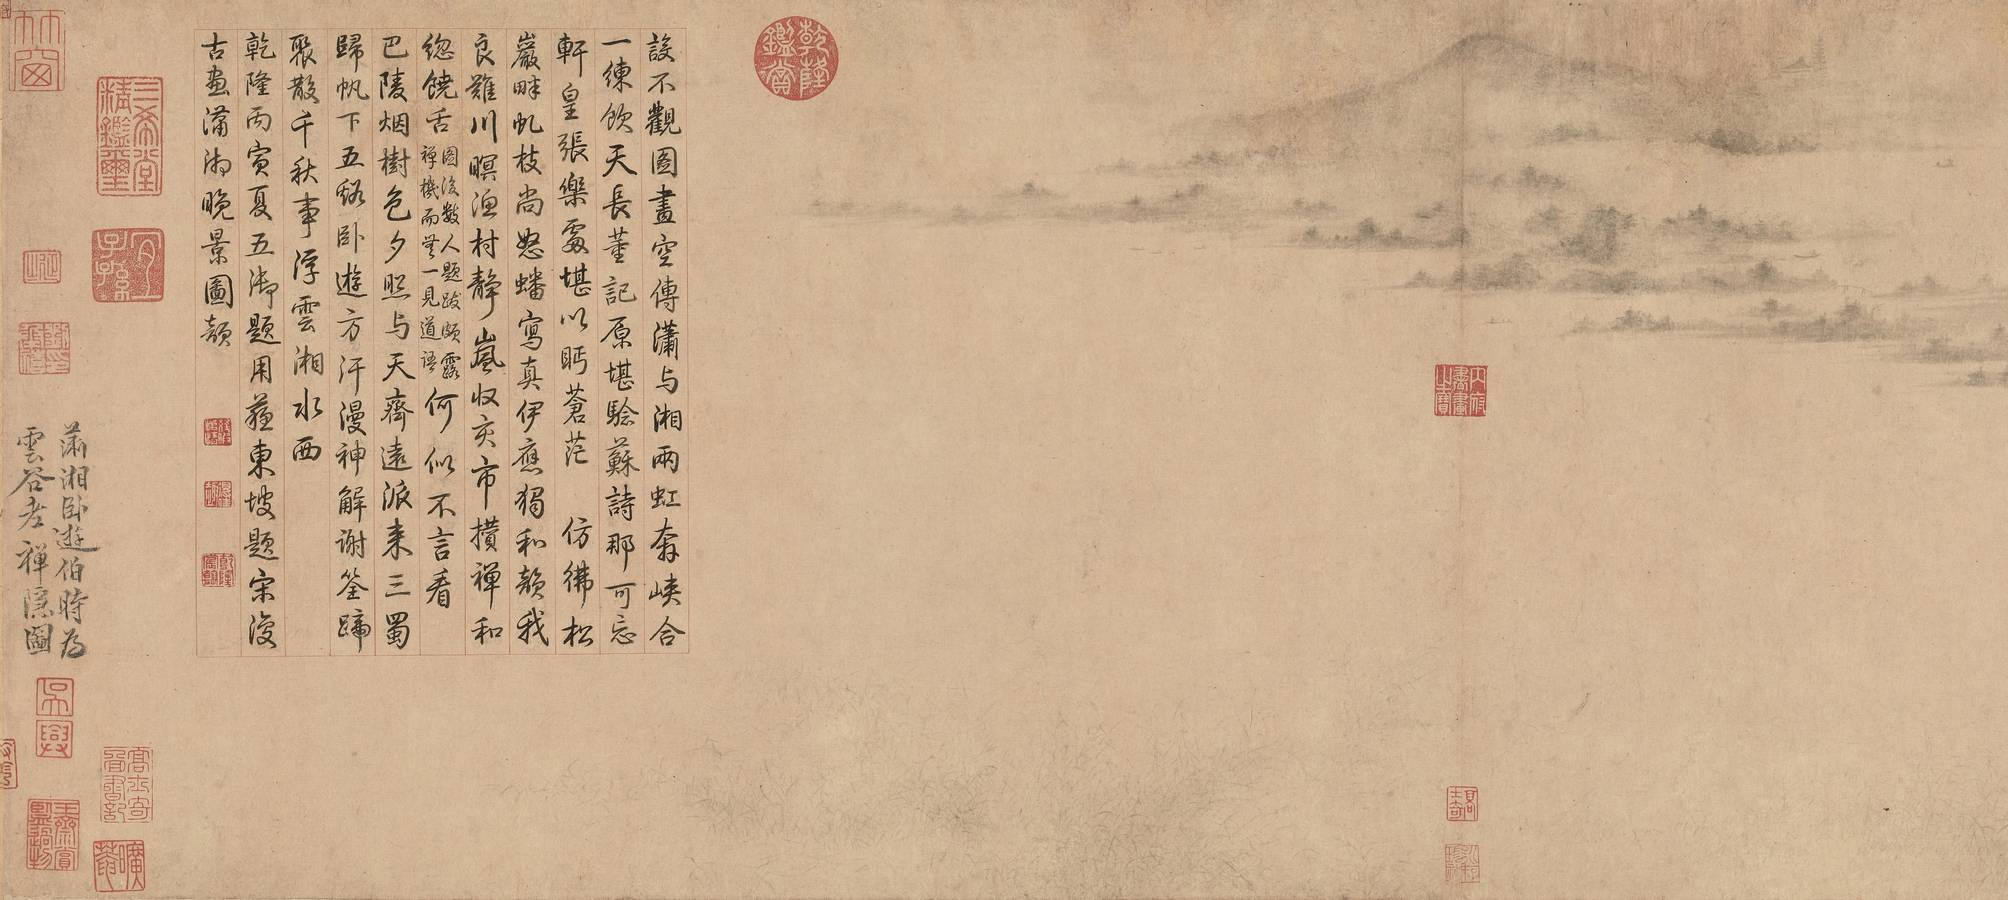 設不觀圖畫空傳瀟与湘兩虹奔峽合
一練飲天長董記原堪驗蘇詩那可忘
軒皇張樂處堪以眄蒼茫 仿彿松
巖畔虬枝尚怒蟠寫真伊應獨和韻我
良難川暝漁村靜嵐收亥市攢禪和
總饒舌圖後數人題跋頗露禪機而無一見道語何似不言看
巴陵烟樹色夕照与天齊遠派来三蜀
歸帆下五谿卧遊方汗漫神解謝筌蹄
聚散千秋事浮雲湘水西
乾隆丙寅夏五御題用蘇東坡題宋復
古畫瀟湘晚景圖韻
瀟湘卧遊伯時為
雲谷老禪隱圖
乾隆鑑賞
三希堂精鑑璽
宜子孫
內府書畫之寶
吳興
高士奇圖書記